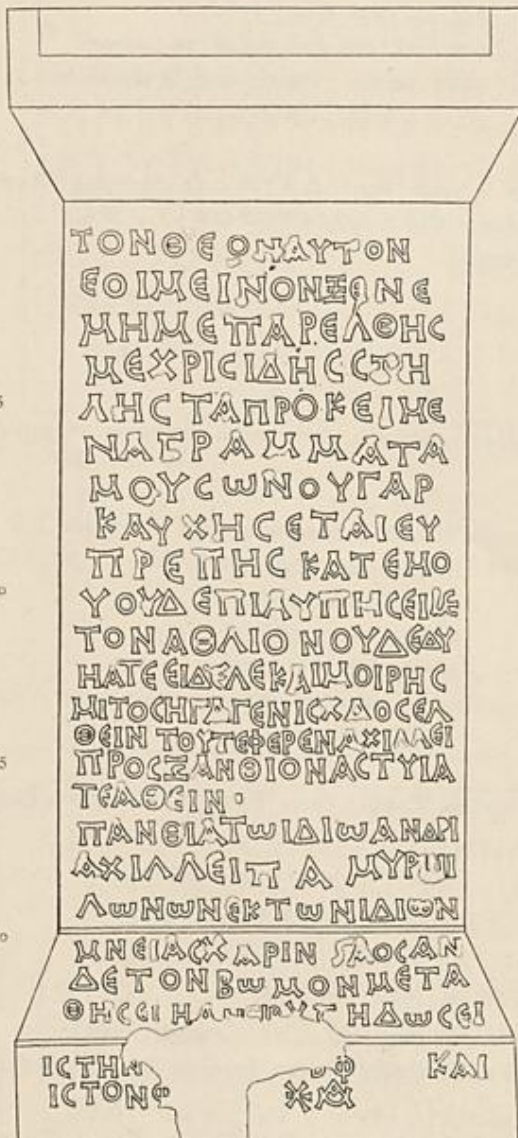 ΤΟΝΘΕΟΝΑΥΤΟΝ
ΕΟΙΜΕΙΝΟΝΞΕΝΕ
ΜΗΜΕΠΑΡΕΛΘΗϹ
ΜΕΧΡΙϹΙΔΗϹϹΤΗ
ΛΗϹΤΑΠΡΟΚΕΙΜΕ
ΝΑΓΡΑΜΜΑΤΑ
ΜΟΥϹωΝΟΥΓΑΡ
ΚΑΥΧΗϹΕΤΑΙΕΥ
ΠΡΕΠΗϹ ΚΑΤΕΜΟ
ΥΟΥΔΕΠΙΛΥΠΗϹΕΙΜΕ
ΤΟΝΑΘΛΙΟΝΟΥΔΕΔΥ
ΗΑΤΕΕΙΔΕΛΕΚΑΙΜΟΙΡΗϹ
ΜΙΤΟϹΗΓΑΓΕΝΙϹΧΑΟϹΕΛ
ΘΕΙΝ ΤΟΥΤΕΦΕΡΕΝΑΧΙΛΛΕΙ
ΠΡΟϹΞΑΝΘΙΟΝΑϹΤΥΙΑ
ΤΕΛΘΕΙΝ
ΠΑΝΘΙΑΤωΙΔΙωΑΝΔΡΙ
ΑΧΙΛΛΕΙΠ Α ΜΥΡ
ΛωΝωΝΕΚΤωΝΙΔΙωΝ
ΜΝΕΙΑϹΧΑΡΙΝ ΟϹΑΝ
ΔΕΤΟΝΒωΜΟΝΜΕΤΑ
ΘΗϹΕΙ ΗΔωϹΕΙ
ΙϹΤΗΝ Φ ΚΑΙ
ΙϹΤΟΝΦ